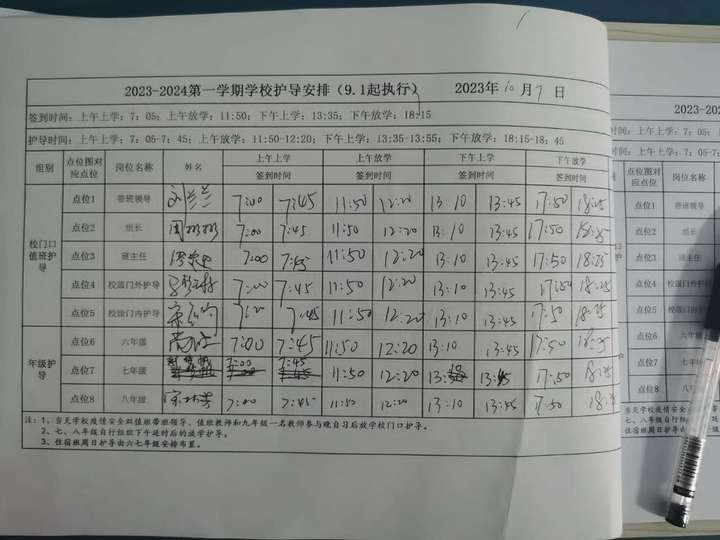 2023-2024第一学期学校护导安排（9.1起执行） 2023年10月7日
签到时间：上午上学：7：05；上午放学：11:50；下午上学：13:35；下午放学：18:15
护导时间：上午上学：7：05-7：45；上午放学：11:50-12:20；下午上学：13:35-13:55；下午放学：18:15-18：45
组别 点位图对应点位 岗位名称 姓名 上午上学 上午放学 下午上学 下午放学
签到时间 签到时间 签到时间 签到时间
校门口值班护导
点位1 带班领导 刘兰兰 7:00 7:45 11:50 12:20 13:10 13:45 17:50 18:25
点位2 组长 周彬彬 7:00 7:45 11:50 12:20 13:10 13:45 17:50 18:25
点位3 班主任 7:00 7:45 11:50 12:20 13:10 13:45 17:50 18:25
点位4 校园门外护导 7:00 7:45 11:50 12:20 13:10 13:45 17:50 18:25
点位5 校园门内护导 7:20 7:45 11:50 12:20 13:10 13:45 7:50 18:25
年级护导
点位6 六年级 7:00 7:45 11:50 12:20 13:10 13:45 17:50 18:25
点位7 七年级 7:00 7:45 11:50 12:20 13: 13:45 17:50 18:25
点位8 八年级 7:00 7:45 11:50 12:20 13:10 13:45 17:50 18:25
注：1、当天学校疫情安全双值班带班领导、值班教师和九年级一名教师参与晚自习后放学校门口护导。
2、七、八年级自行组织下午延时后的放学护导。
3、住宿班周日护导由六七年级安排布置。
2023-202
时间：上午上学：7：05
时间：上午上学：7：05-7：
点位图对应点位 岗位名称
点位1 带班领导
点位2 组长
点位3 班主任
点位4 校园门外护导
点位5 校园门内护导
点位6 六年级
点位7 七年级
点位8 八年级
当天学校疫情安全双
七、八年级自行组织
住宿班周日护导由